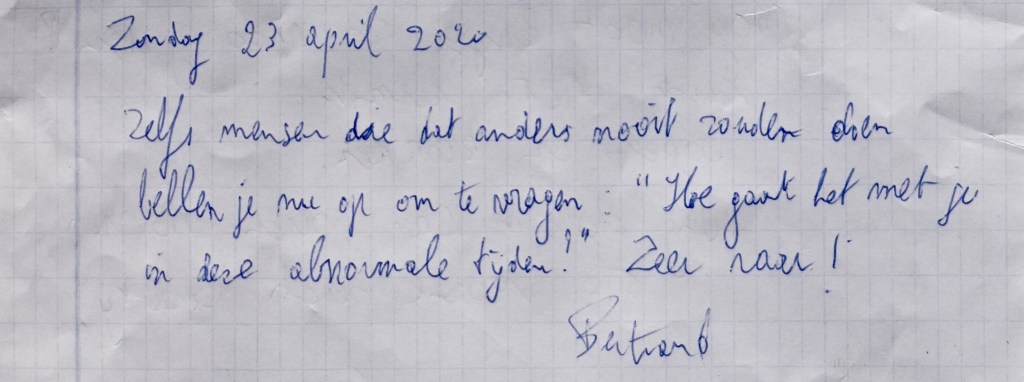 Zondag 23 april 2020
Zelfs mensen die dat anders nooit zouden doen
bellen je nu op om te vragen: "Hoe gaat het met je
in deze abnormale tijden?" Zeer raar!
Bertrand